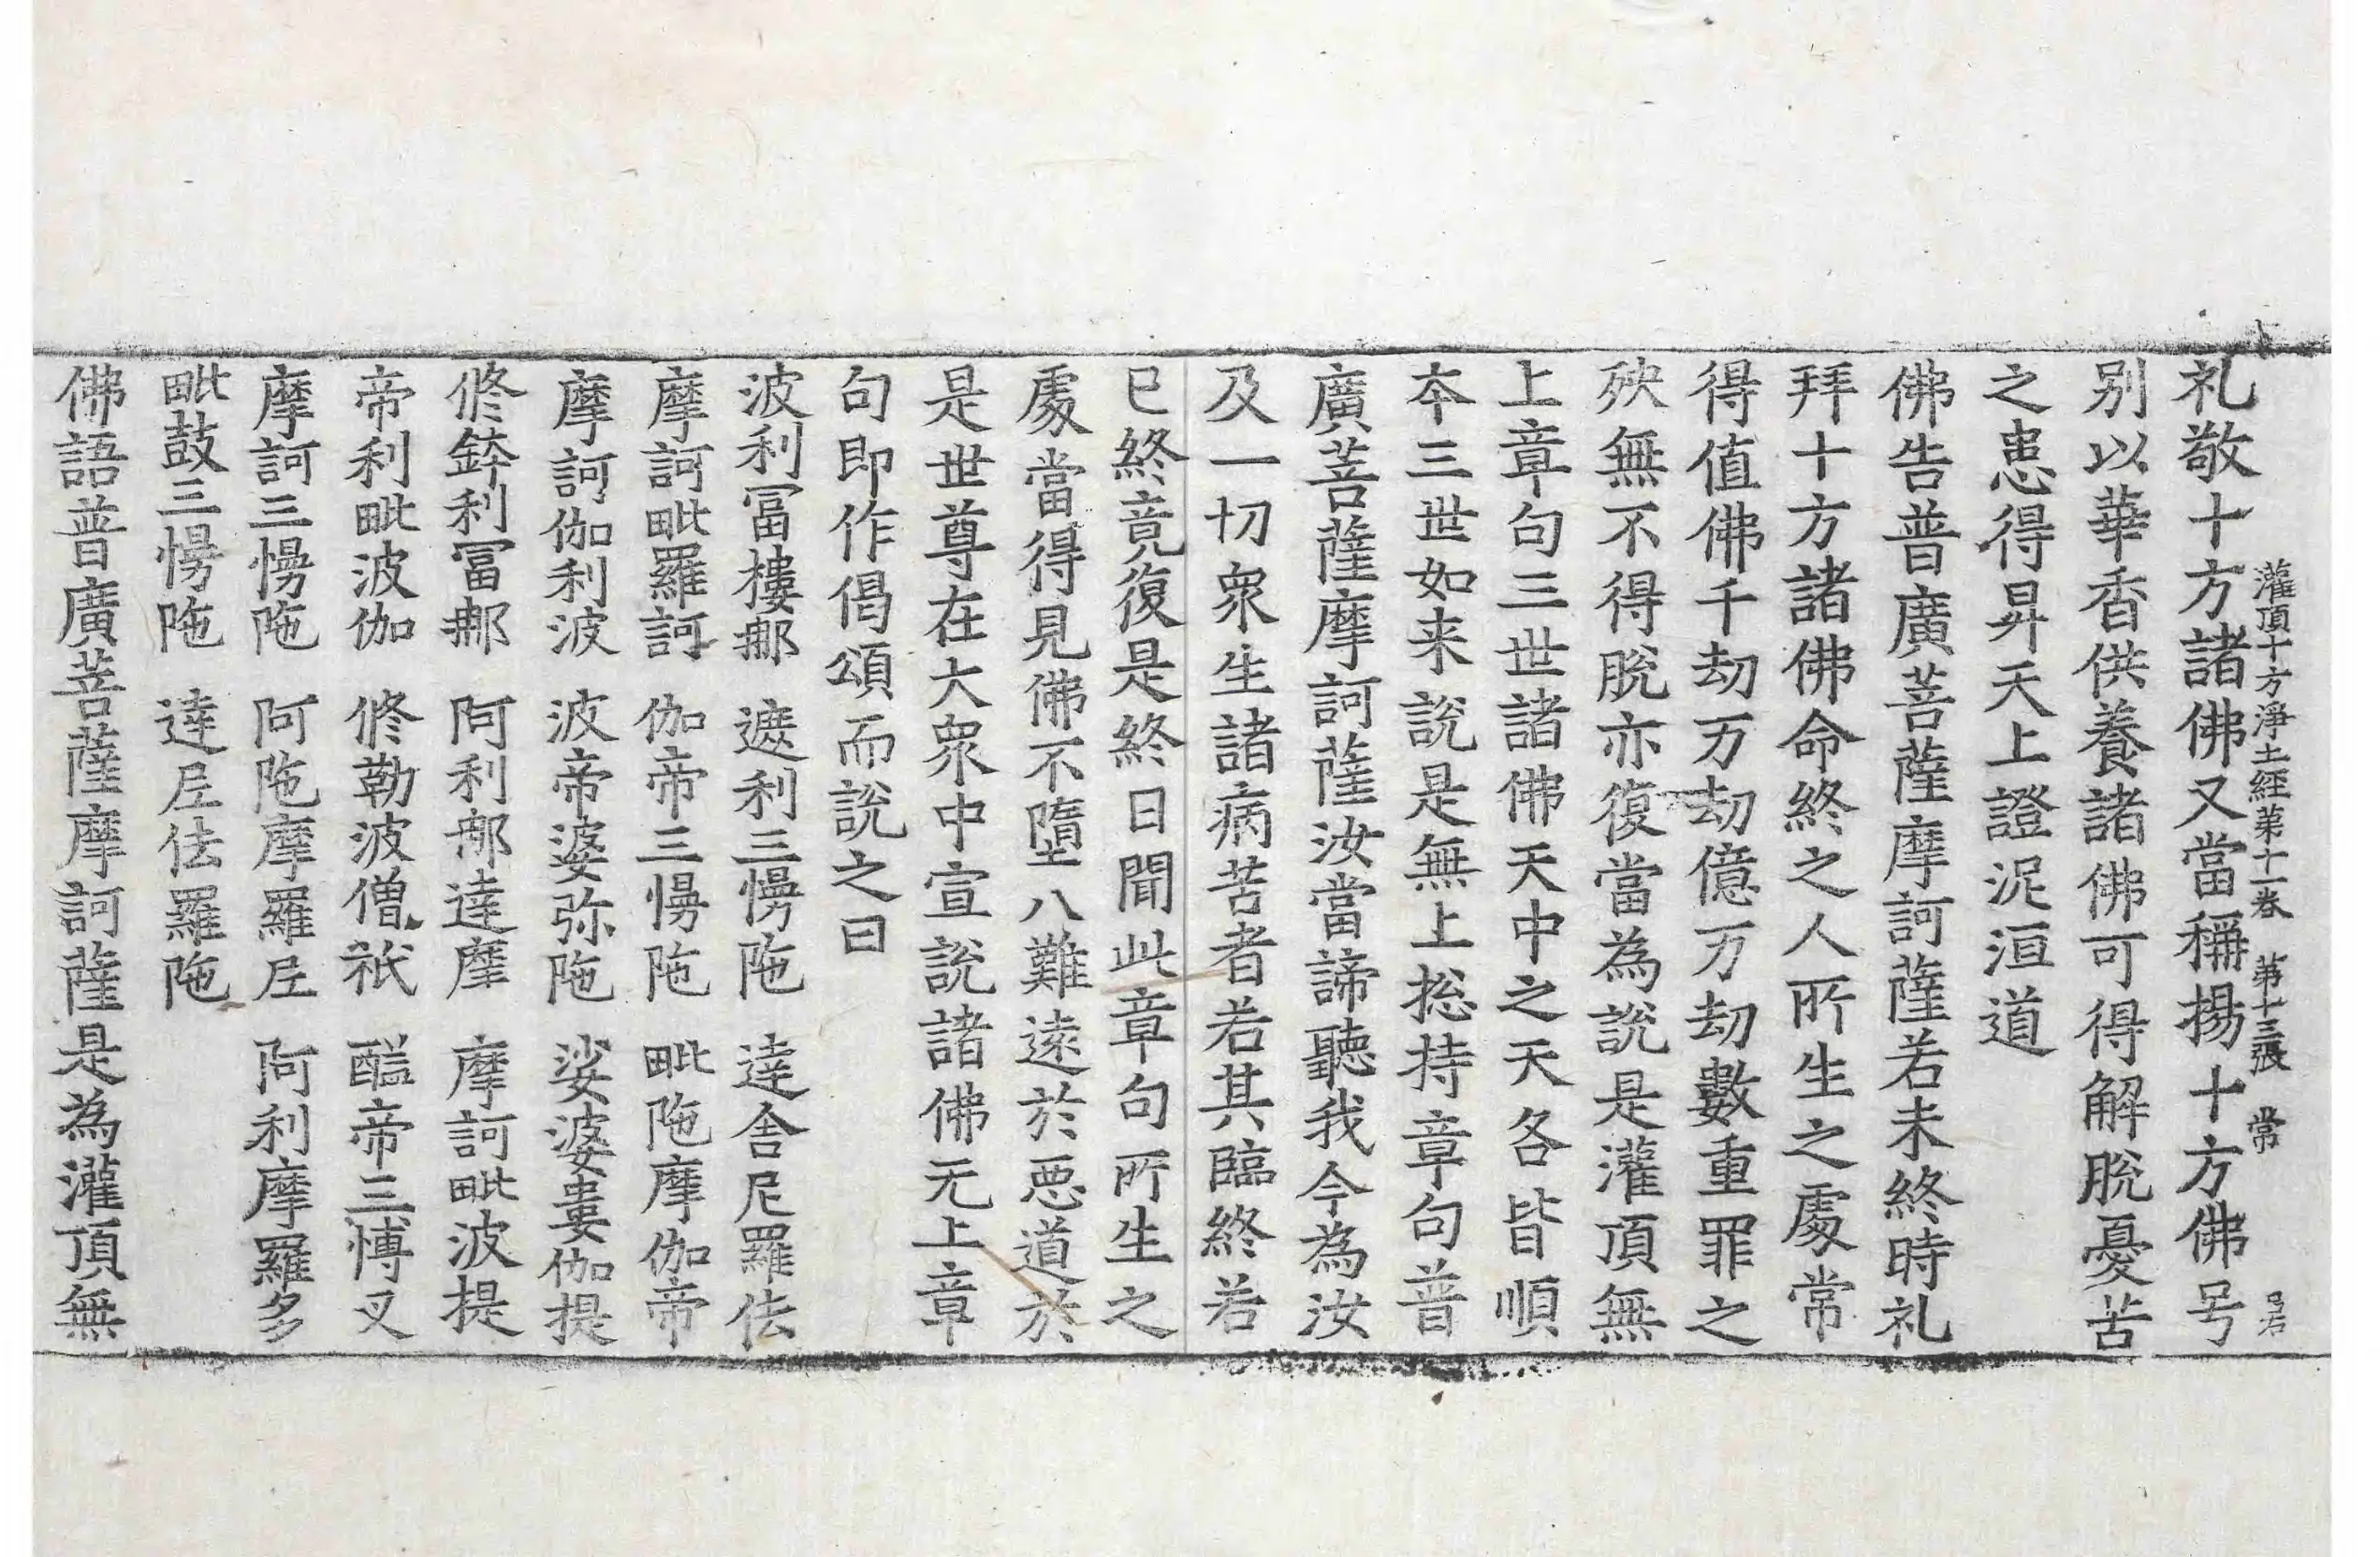 灌頂十方淨土經第十一卷 第十三張 常
礼敬十方諸佛又當稱揚十方佛号
別以華香供養諸佛可得解脫憂苦
之患得昇天上證泥洹道
佛告普廣菩薩摩訶薩若未終時礼
拜十方諸佛命終之人所生之處常
得值佛千劫万劫億万劫數重罪之
殃無不得脫亦復當為說是灌頂無
上章句三世諸佛天中之天各皆順
夲三世如来說是無上揔持章句普
廣菩薩摩訶薩汝當諦聽我今為汝
及一切衆生諸病苦者若其臨終若
已終竟復是終日聞此章句所生之
處當得見佛不墮八難逺於惡道於
是世尊在大衆中宣說諸佛无上章
句即作偈頌而說之曰
波利冨樓那 遮利三愣陁 達舍尼羅佉
摩訶毗羅訶 伽帝三愣陁 毗陁摩伽帝
摩訶伽利波 波帝婆弥陁 娑婆婁伽提
修鉢利冨那 阿利那達摩 摩訶毗波提
帝利毗波伽 修勒波僧祇 醯帝三愽叉
摩訶三愣陁 阿陁摩羅尼 阿利摩羅多
毗鼓三愣陁 達尼佉羅陁
佛語普廣菩薩摩訶薩是為灌頂無